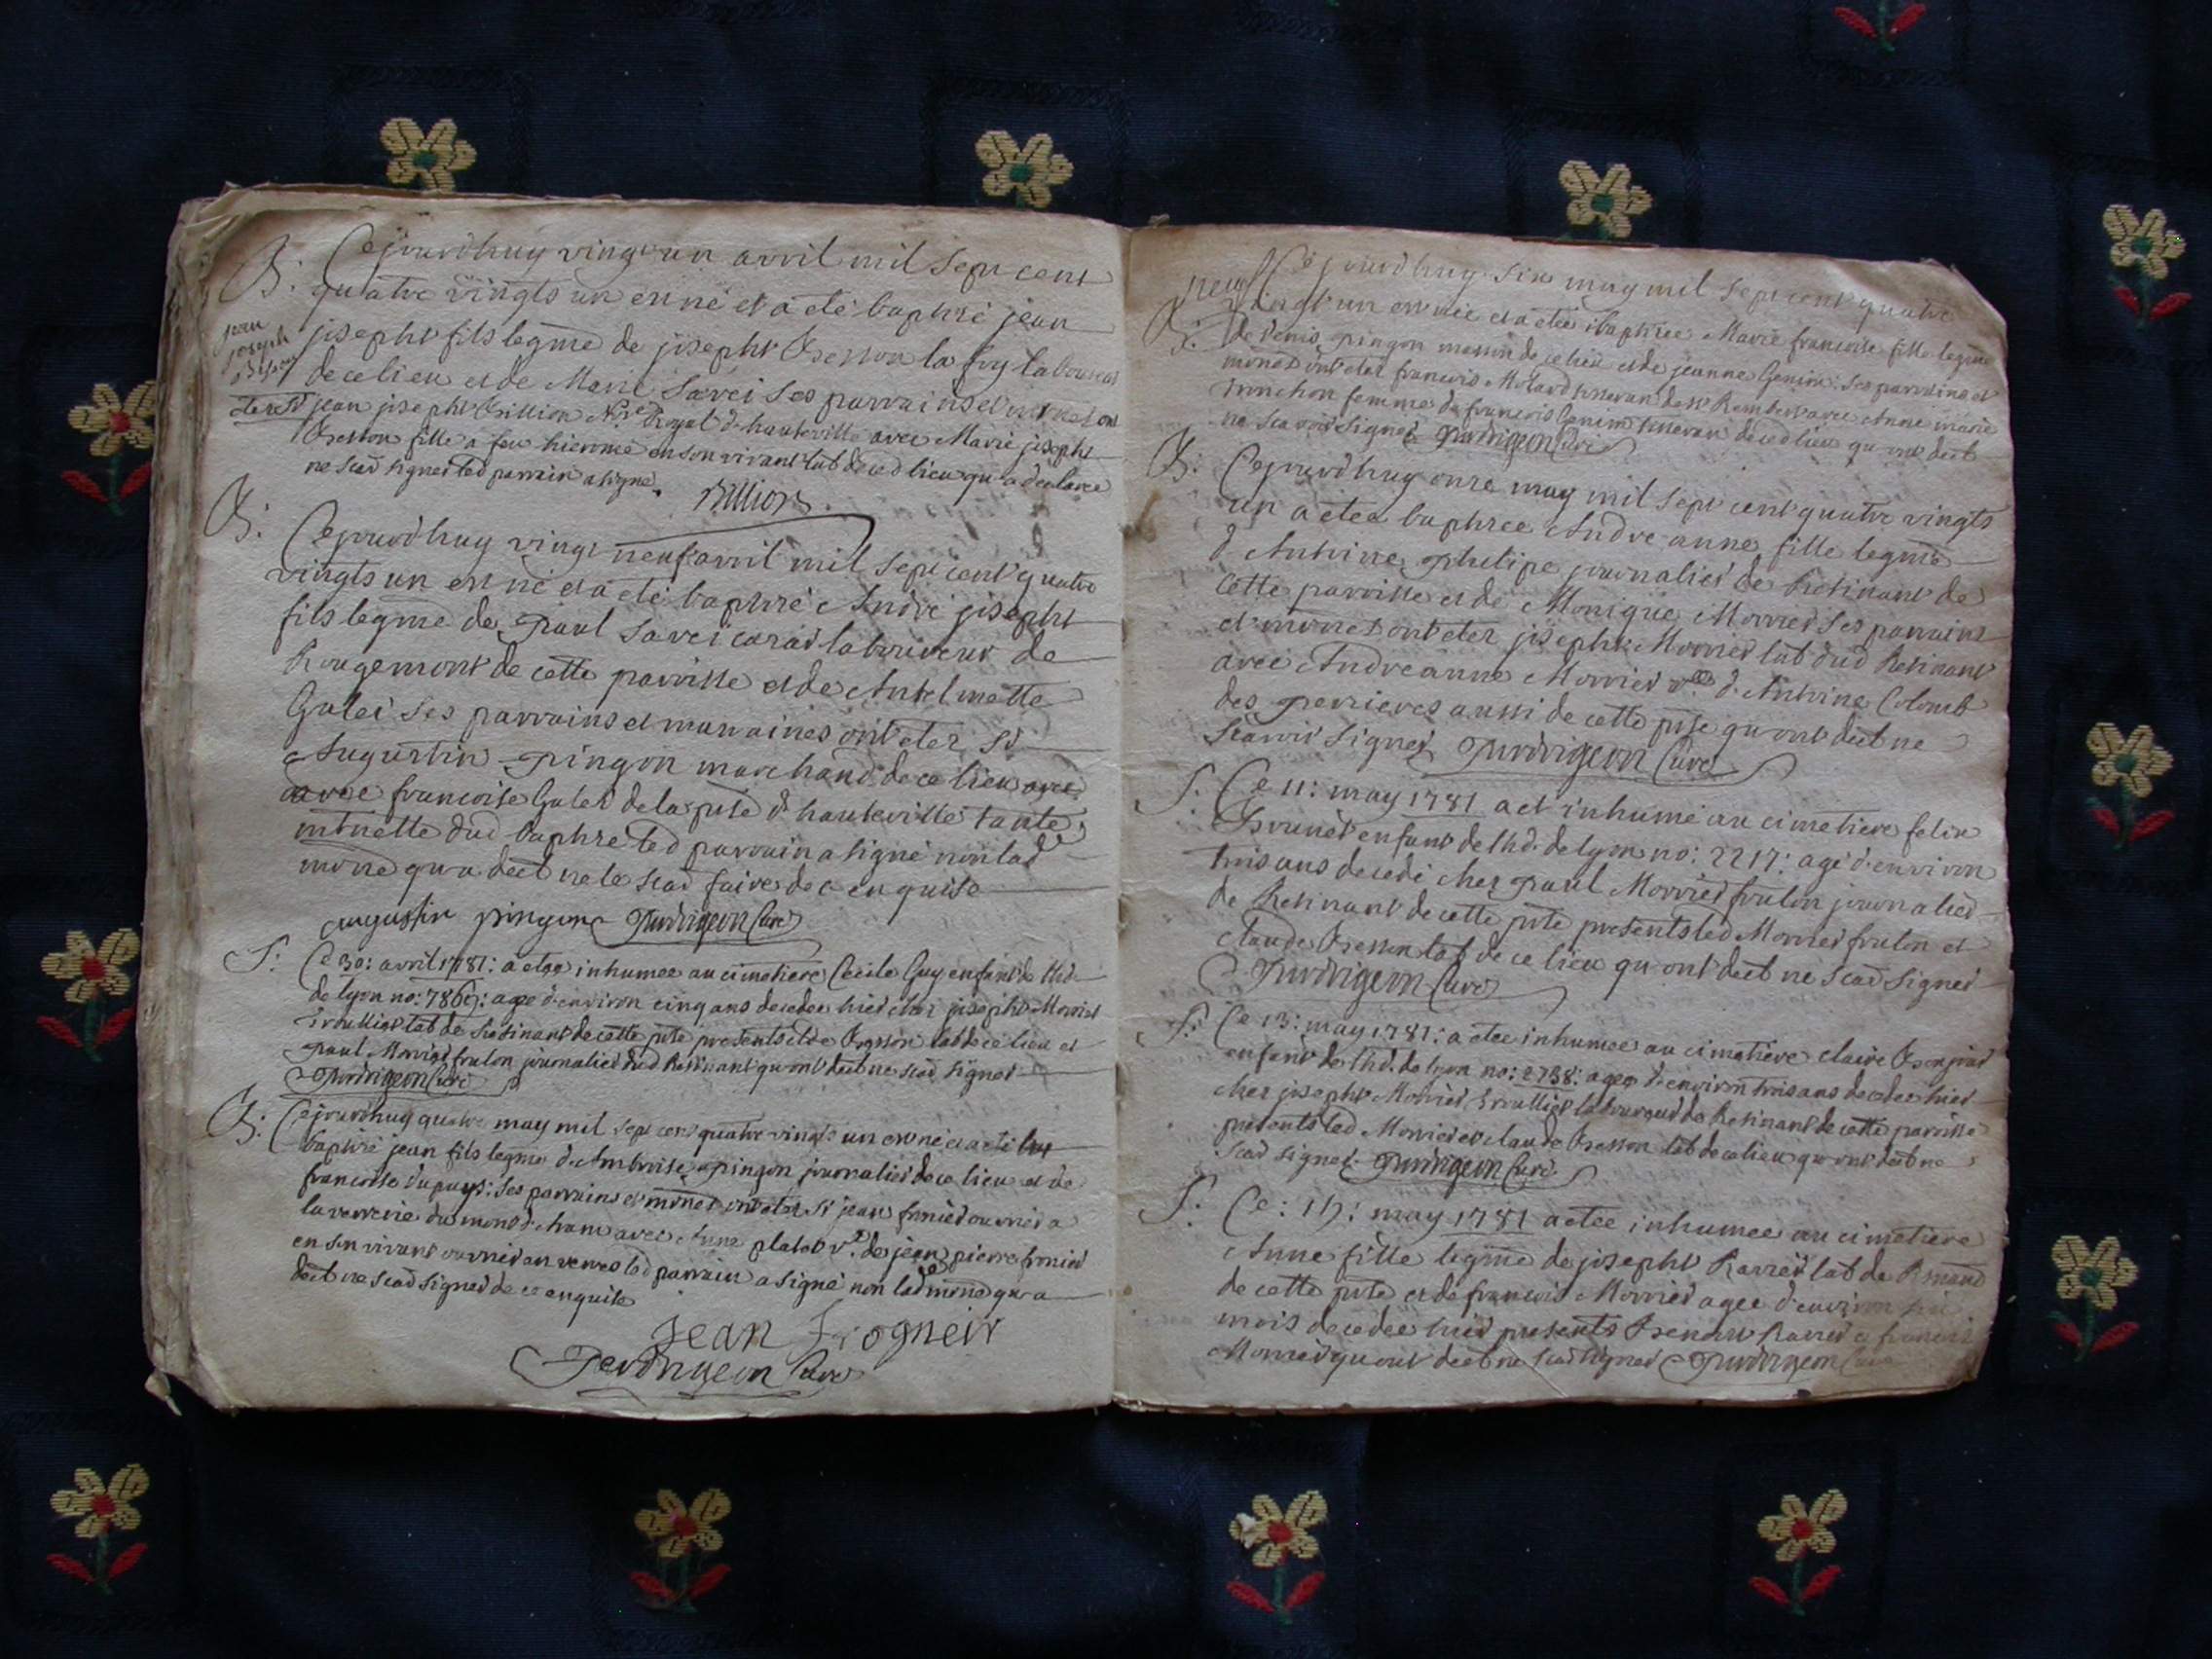 B: Cejourdhuy vingt un avril mil sept cent
quatre vingts un est né et a eté baptisé jean
jean
joseph
josepht fils legme de josepht Besson la foy laboureur
de ce lieu et de Marie Savei ses parrains et
eter Sr jean josepht Billion Nre Royal d'hauteville avec Marie josepht
Besson fille a feu hierome en son vivant lab de ced lieu qu a declaree
ne scad signer led parrain a signe. Billion
B: Cejourdhuy vingt neuf avril mil sept cent quatre
vingts un est né et a eté baptisé André josepht
fils legme de Paul Savei laboureur de
Rougemont de cette parroisse et de Antelmette
Gulei ses parrains et marraines ont eter Sr
Augustin Pingon marchand de ce lieu avec
avec francoise Gulei de la pnse d'hauteville tante
mtnelle dud baptise led parrain a signé non lad
mrne qu a declt ne le scad faire de ce enquise
augustin pingon Purdrigeon Curé
S: Ce 30: avril 1781: a etee inhumee au cimetiere Cecile Guy enfant de lhd
de lyon no: agee d'environ cinq ans decedee hier chez josepht Morrier
lab de Retinant de cette pnse presents Besson lab de ce lieu et
Paul Morrier frulon journalier dud Retinant qu ont declt ne scad signer
Purdrigeon Curé
B: Cejourdhuy quatre may mil sept cent quatre vingts un est né et a eté
baptisé jean fils legme d'Ambroise pingon journalier de ce lieu et de
francoise Dupuys: ses parrains et mrnes ont eter Sr jean ouvrier a
la verrerie du avec Anne platet ve de jean pierre
en son vivant ouvrier en verres led parrain a signé non lad mrne qu a
declt ne scad signer de ce enquise
Jean
Perdrigeon Curé
neuf Cejourdhuy six may mil sept cent quatre
vingt un est née et a etée baptisee Marie francoise fille legme
B: de Denis pingon masson de ce lieu et de jeanne Genin: ses parrains et
mrnes ont eter francois Motard de st Rambert avec Anne marie
femme de francois Genin de ced lieu qu ont declt
ne scavoir signer Purdrigeon Curé
B: Cejourdhuy onze may mil sept cent quatre vingts
un a etee baptisee Andre anne fille legme
d'Antoine Phelipe journalier de Retinant de
cette parroisse et de Monique Morrier ses parrains
et mrnes ont eter josepht Morrier lab dud Retinant
avec Andreanne Morrier d'Antoine Colomb
des perrieres aussi de cette pnse qu ont declt ne
scavoir signer Purdrigeon Curé
S: Ce 11: may 1781 a et inhumé au cimetiere felix
Brunet enfant de lhd. de lyon no: 2217: agé d'environ
trois ans decedé chez paul Morrier frulon journalier
de Retinant de cette pnse presents led Morrier frulon et
claude Besson lab de ce lieu qu ont declt ne scad signer
Purdrigeon Curé
S: Ce 13: may 1781: a etee inhumee au cimetiere claire
enfant de lhd. de lyon no: 2738: agee d'environ trois ans decedee hier
chez josepht Morrier laboureur de Retinant de cette parroisse
presents led Morrier et claude Besson lab de ce lieu qu ont declt ne
scad signer. Purdrigeon Curé
S: Ce: may 1781 a etee inhumee au cimetiere
Anne fille legme de josepht Ravier lab de
de cette pnse et de francoise Morrier agee d'environ
mois decedee hier presents Ravier et francois
Morrier qu ont declt ne scad signer Purdrigeon Curé